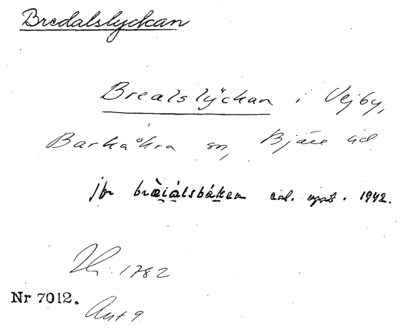 Bredalslyckan
Brealslÿckan i Vejby,
Barkåkra sn, Bjäre hd
jfr bre̱i̱àlsbáḵen enl. uppt. 1942.
1782
Nr 7012.
Akt 9